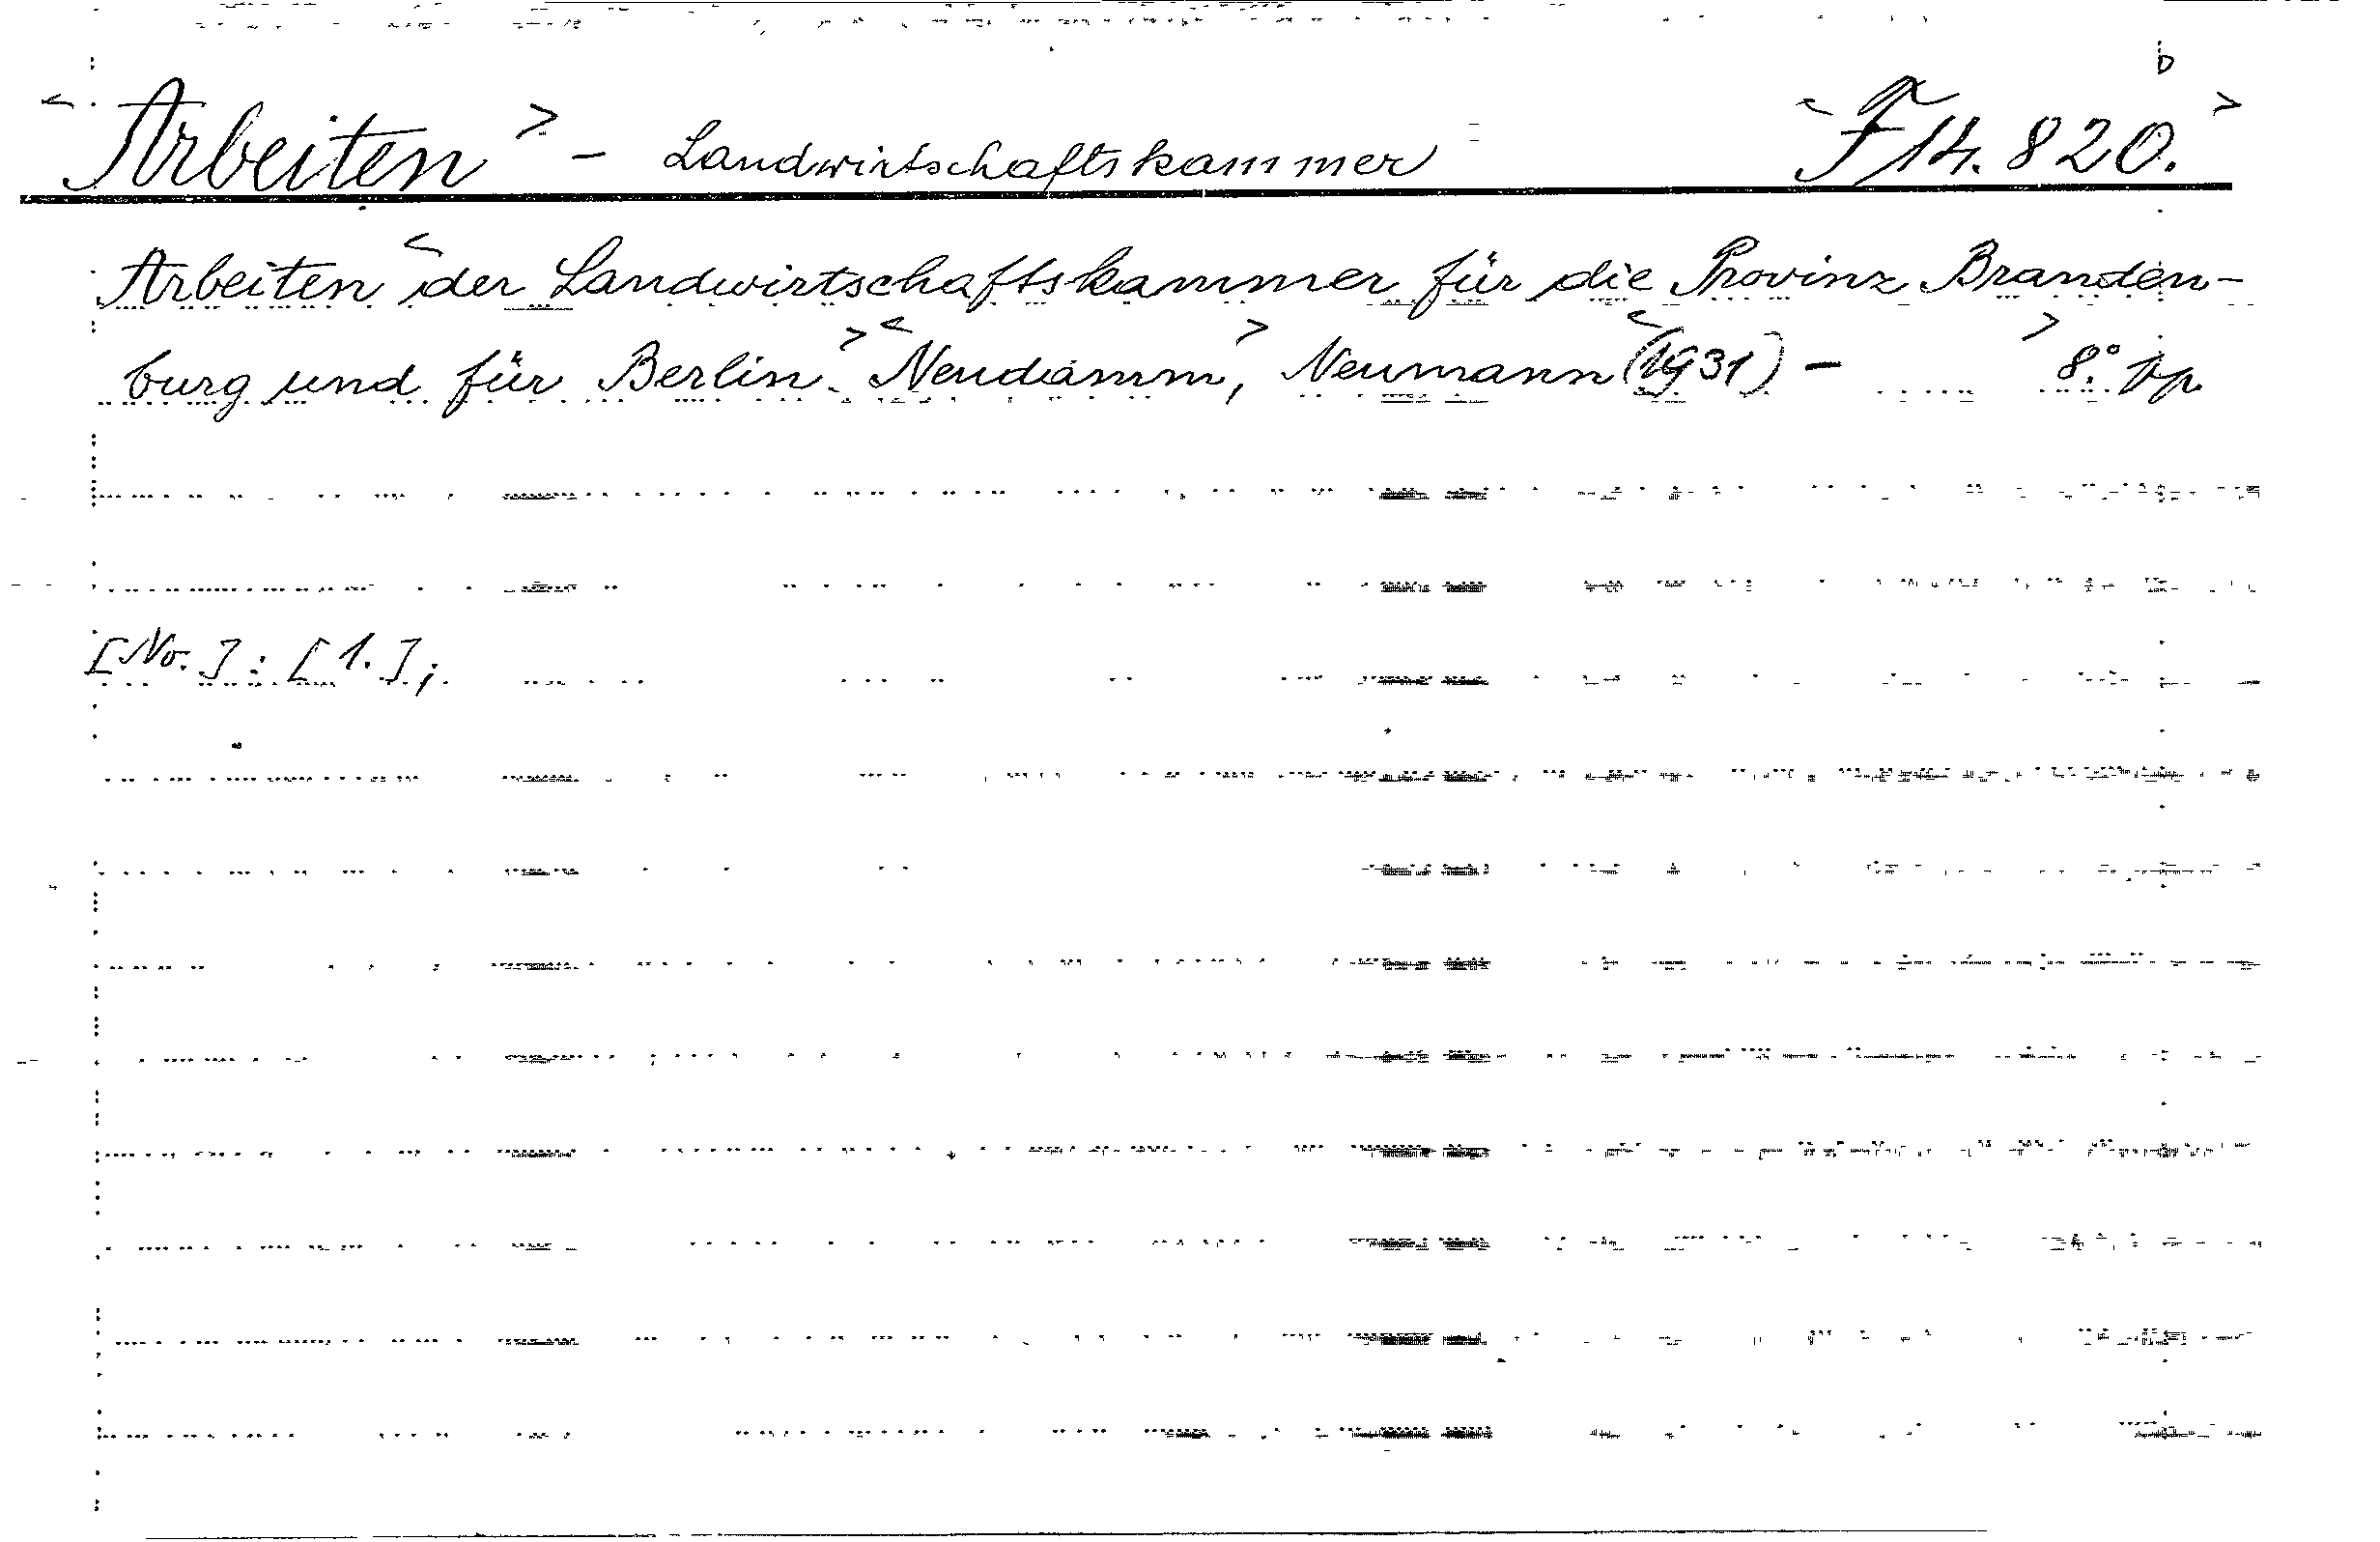 b
< Arbeiten > - Landwirtschaftskammer < F 14.820. >
Arbeiten < der Landwirtschaftskammer für die Provinz Branden-
burg und für Berlin. > < Neudamm, > Neumann < (1931) - > 8°.
[No.] : [1.];